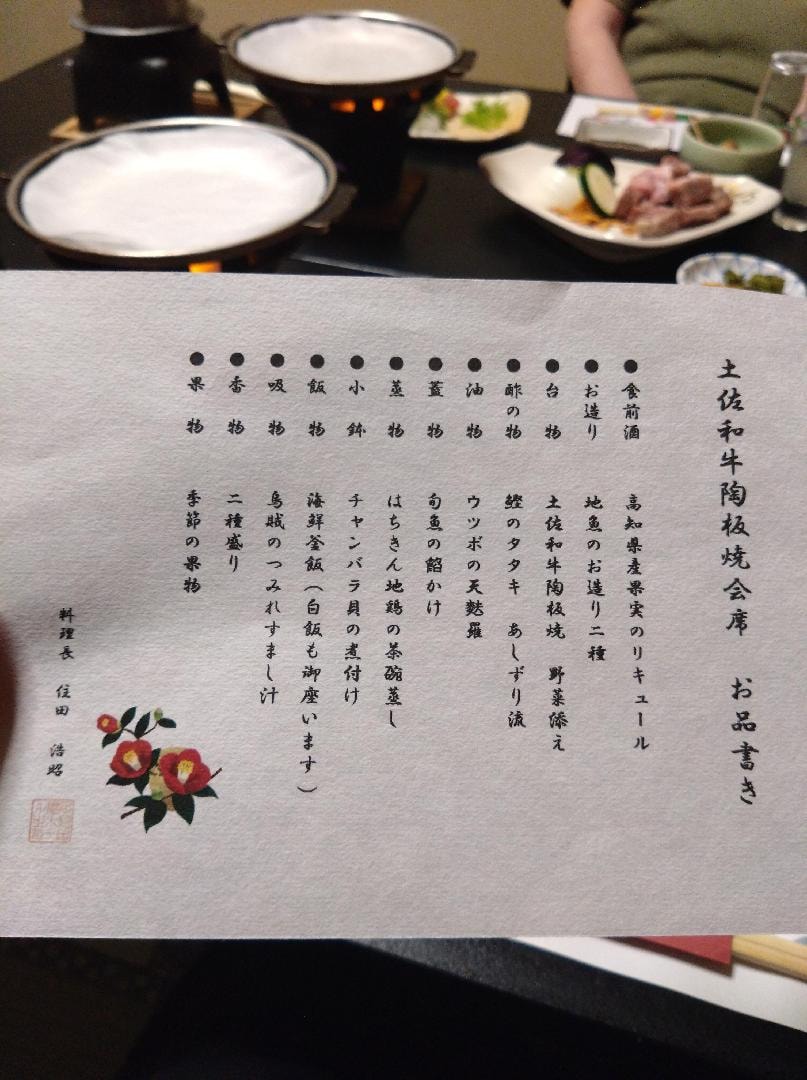 土佐和牛陶板焼会席 お品書き
●食前酒 高知県産果実のリキュール
●お造り 地魚のお造り二種
●台物 土佐和牛陶板焼 野菜添え
●酢の物 鰹のタタキ あしずり流
●油物 ウツボの天麩羅
●蓋物 旬魚の餡かけ
●蒸物 はちきん地鶏の茶碗蒸し
●小鉢 チャンバラ貝の煮付け
●飯物 海鮮釜飯(白飯も御座います)
●吸物 烏賊のつみれすまし汁
●香物 二種盛り
●果物 季節の果物
料理長 住田 浩昭